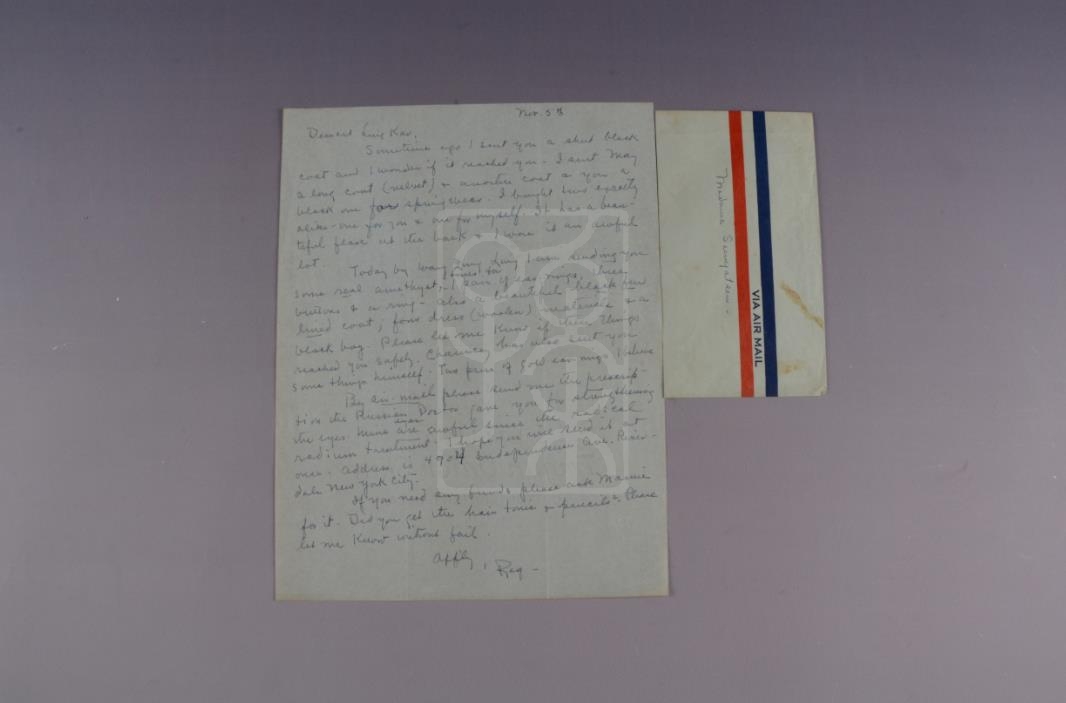 Nov. 5th
Dearest
Sometime ago I sent you a short black
coat and I wonder if it reached you. I sent May
a long coat (velvet) & another coat a
black one for springwear. I bought two exactly
alike - one for you & one for myself. It has a beau-
tiful flare at the back & I wore it an awful
lot.
Today by way I am sending you
some real amethyst, 1 pair of earrings, three
buttons & a ring - also a beautiful black
lined coat, four dress (woolen) materials & a
black bag. Please let me know if these things
reached you safely. Chauncey has also sent you
some things himself. Two pairs of gold earrings I believe
By air-mail please send me the prescrip-
tion the Russian Doctor gave you for strengthening
the eyes. Mine are awful since the radical
radium treatment. I hope you will send it at
once. Address is 4904 Independence Ave. River-
dale New York City.
If you need any funds please ask Mamie
for it. Did you get the hair tonic & pencils? Please
let me know without fail.
Affly,
Reg -
Madame Sun
VIA AIR MAIL